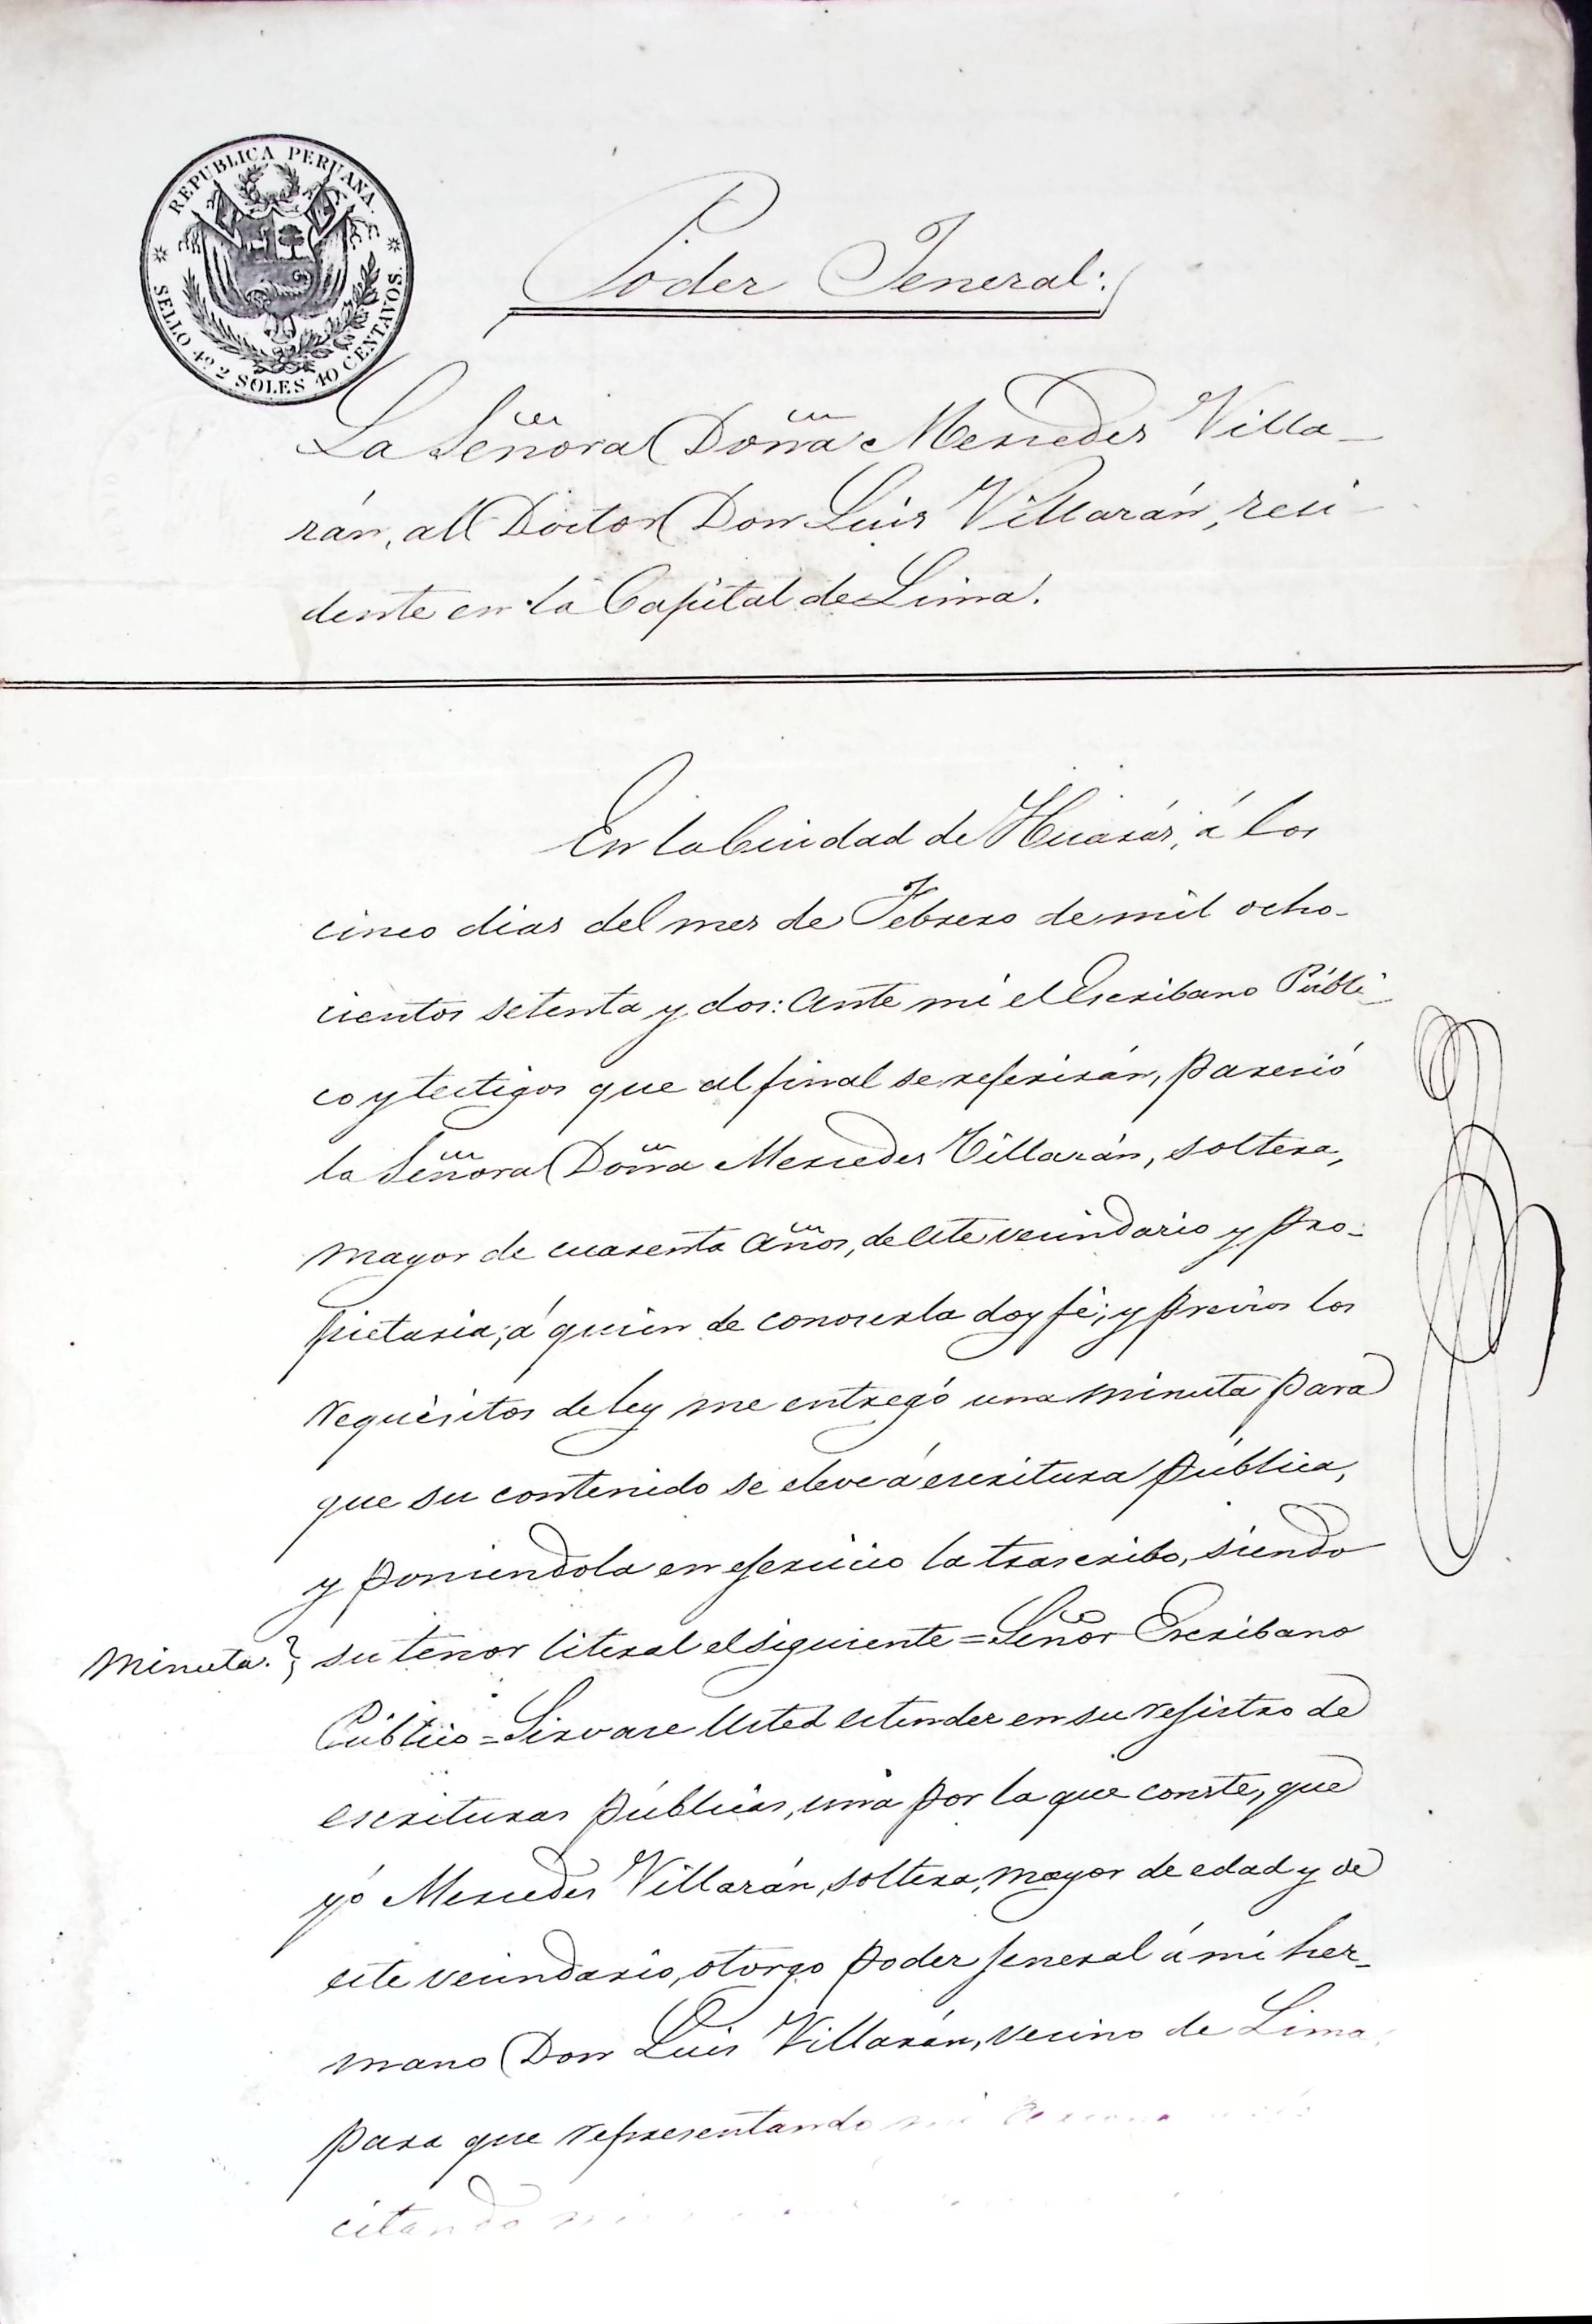 REPUBLICA PERUANA.
SELLO 4º. 2 SOLES 40 CENTAVOS.
Poder Jeneral:
La Señora Doña Mercedes Villa-
rán, al Doctor Don Luis Villarán, resi-
dente en la Capital de Lima.
En la Ciudad de Huarás, á los
cinco dias del mes de Febrero de mil ocho-
cientos setenta y dos: Ante mi el Escribano Públi-
co y testigos que al final se referirán, pareció
la Señora Doña Mercedes Villarán, soltera,
mayor de cuarenta años, de este vecindario y pro-
pietaria; á quien de conocerla doy fé; y previos los
requisitos de ley me entregó una minuta para
que su contenido se eleve á escritura pública,
y poniendola en ejercicio la trascribo, siendo
Minuta. su tenor literal el siguiente = Señor Escribano
Público = Sirvase Usted estender en su rejistro de
escrituras públicas, una por la que conste, que
yó Mercedes Villarán, soltera, mayor de edad y de
este vecindario, otorgo poder jeneral á mi her-
mano Don Luis Villarán, vecino de Lima,
para que representando mi
citando